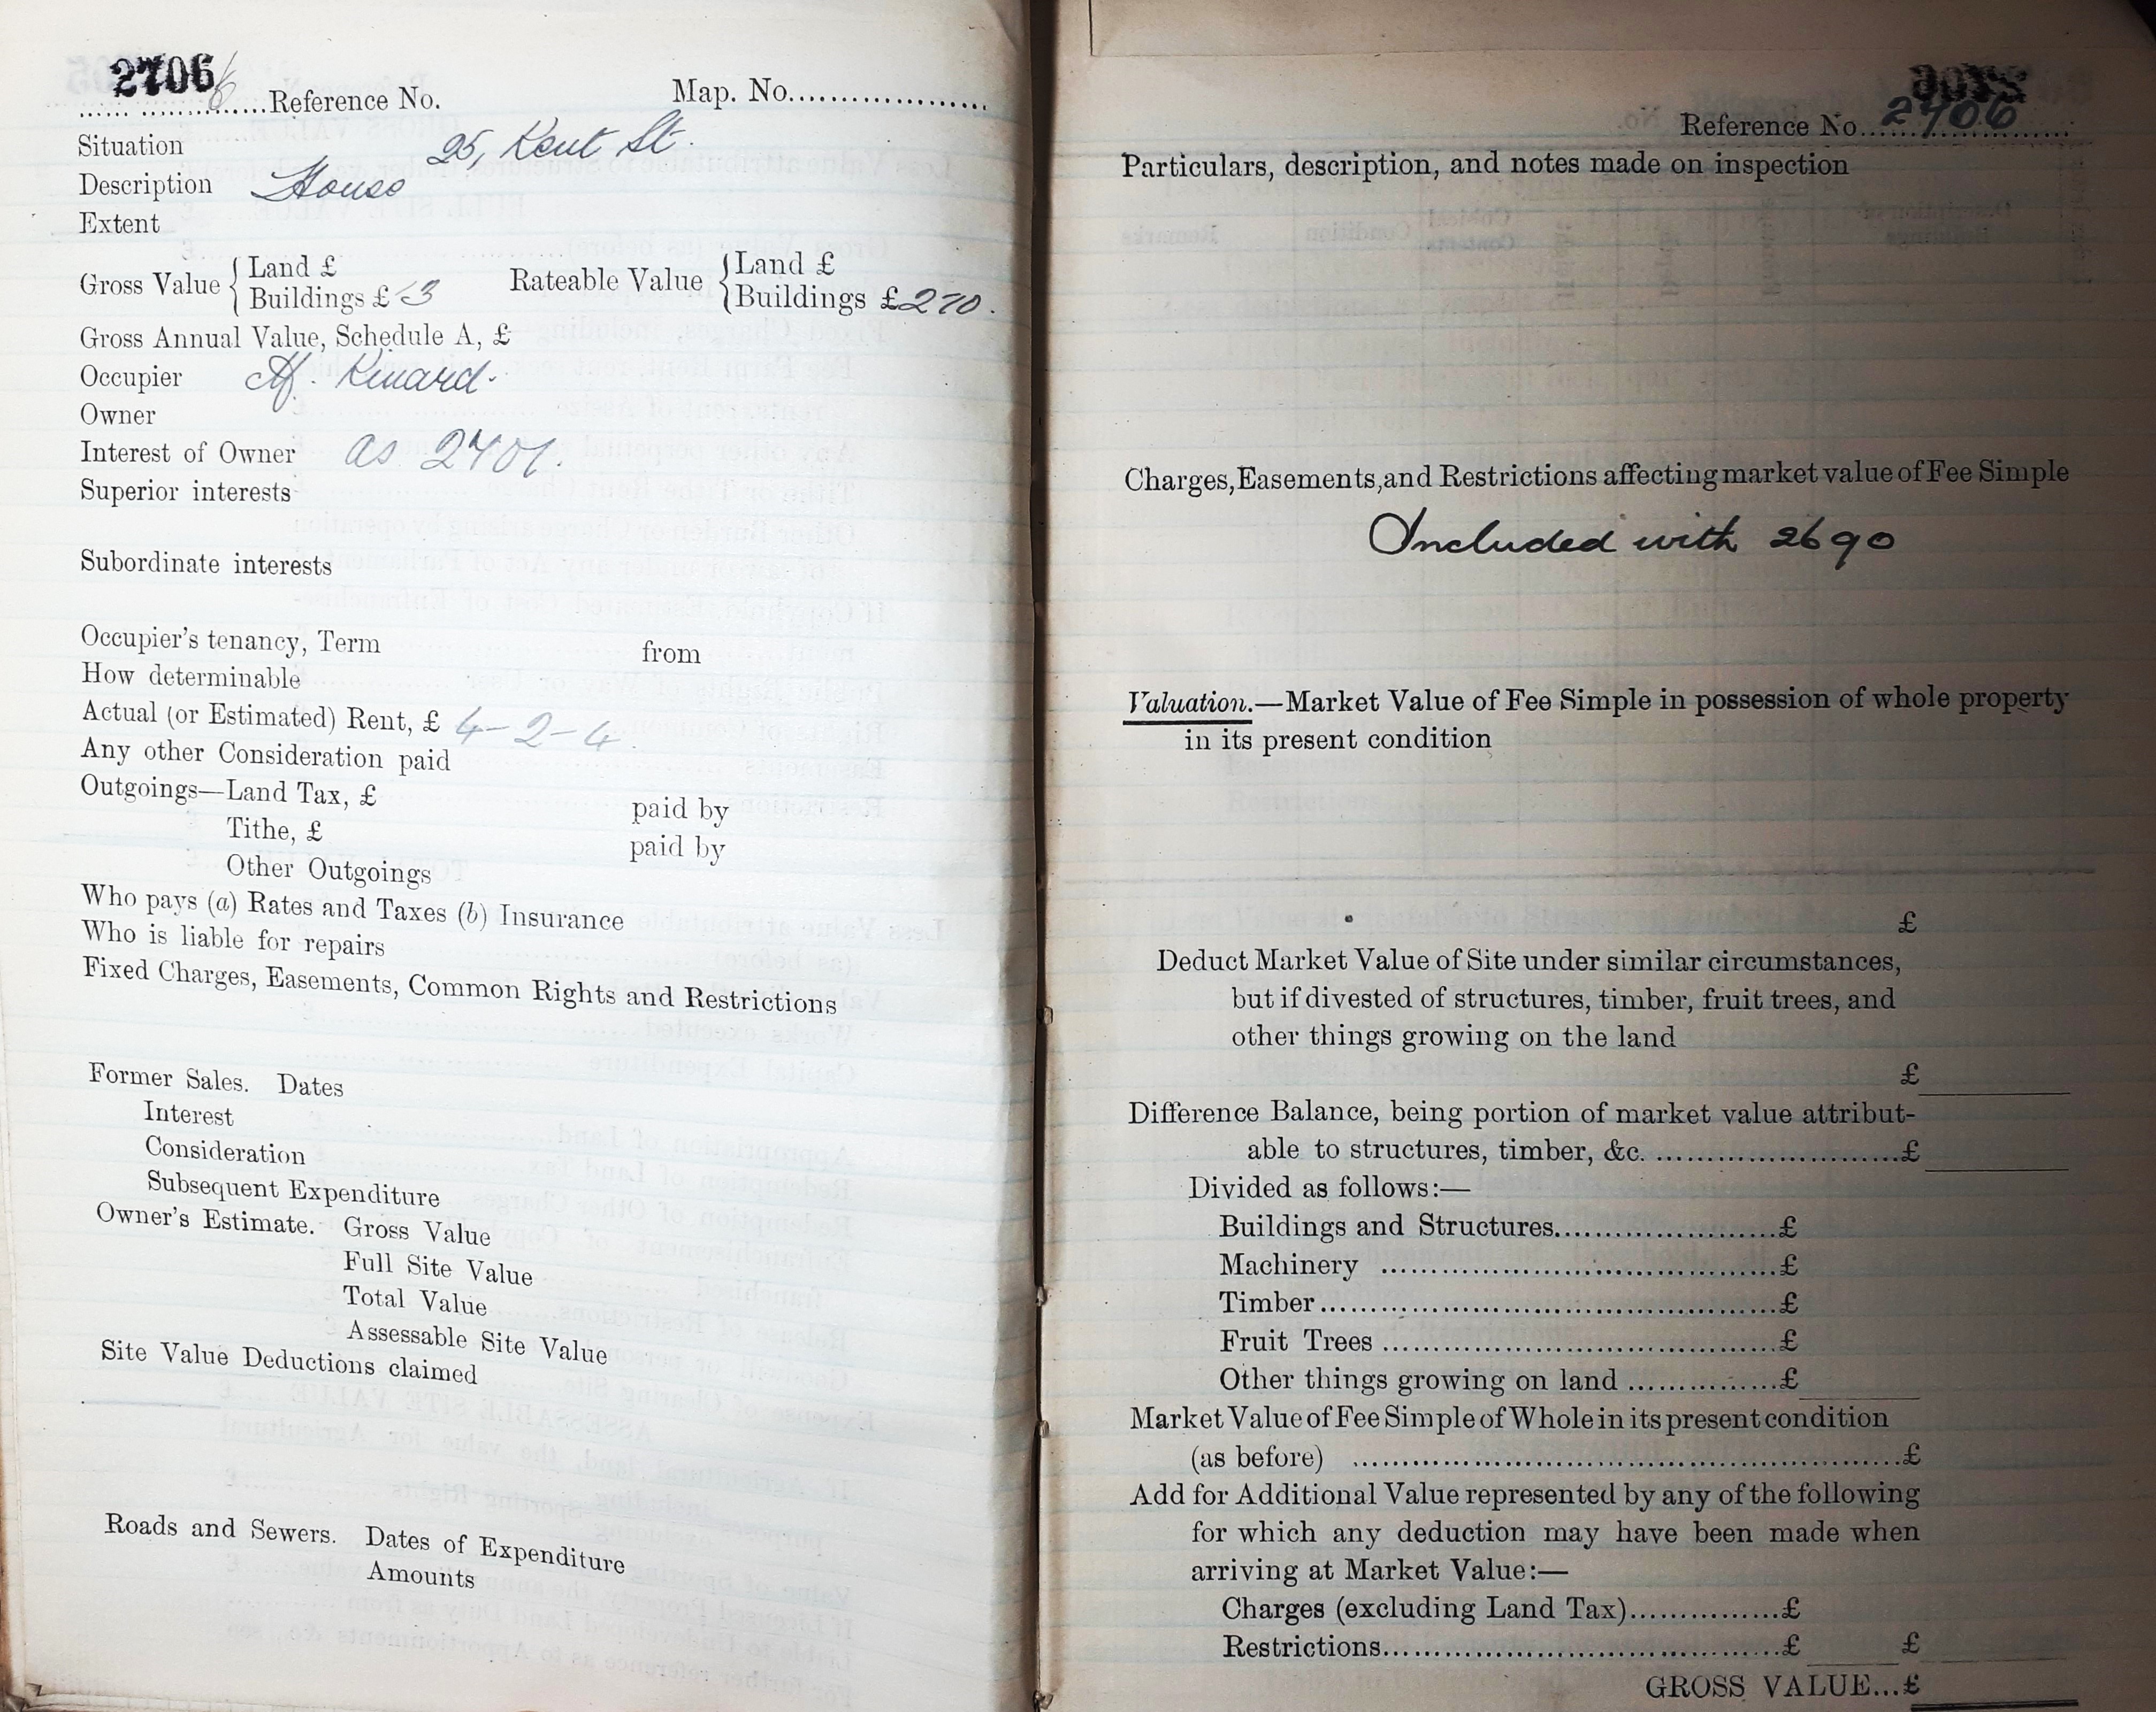 2706
Reference No. Map. No.
Situation 25, Kent St.
Description House
Extent
Gross Value Land £
Buildings £ 3
Rateable Value Land £
Buildings £ 2 10.
Gross Annual Value, Schedule A, £
Occupier Kinard.
Owner
Interest of Owner as 2701.
Superior interests
Subordinate interests
Occupier's tenancy, Term from
How determinable
Actual (or Estimated) Rent, £ 4-2-4
Any other Consideration paid
Outgoings—Land Tax, £ paid by
Tithe, £ paid by
Other Outgoings
Who pays (a) Rates and Taxes (b) Insurance
Who is liable for repairs
Fixed Charges, Easements, Common Rights and Restrictions
Former Sales. Dates
Interest
Consideration
Subsequent Expenditure
Owner's Estimate. Gross Value
Full Site Value
Total Value
Assessable Site Value
Site Value Deductions claimed
Roads and Sewers. Dates of Expenditure
Amounts
Reference No. 2706
Particulars, description, and notes made on inspection
Charges, Easements, and Restrictions affecting market value of Fee Simple
Included with 2690
Valuation.—Market Value of Fee Simple in possession of whole property
in its present condition
£
Deduct Market Value of Site under similar circumstances,
but if divested of structures, timber, fruit trees, and
other things growing on the land
£
Difference Balance, being portion of market value attribut-
able to structures, timber, &c. £
Divided as follows:—
Buildings and Structures £
Machinery £
Timber £
Fruit Trees £
Other things growing on land £
Market Value of Fee Simple of Whole in its present condition
(as before) £
Add for Additional Value represented by any of the following
for which any deduction may have been made when
arriving at Market Value:—
Charges (excluding Land Tax) £
Restrictions £ £
GROSS VALUE...£